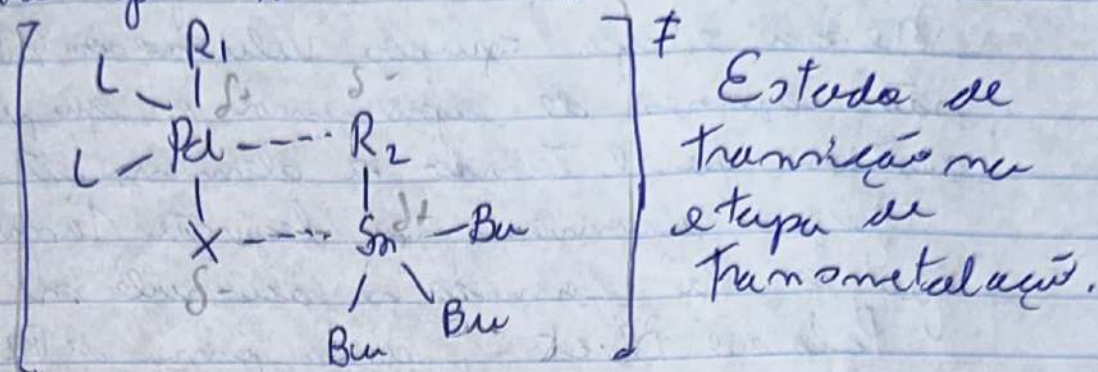 R1
L
δ+ δ-
Pd R2
L
δ+
X Sn Bu
δ-
Bu Bu
‡
Estado de
transição na
etapa de
transmetalação.